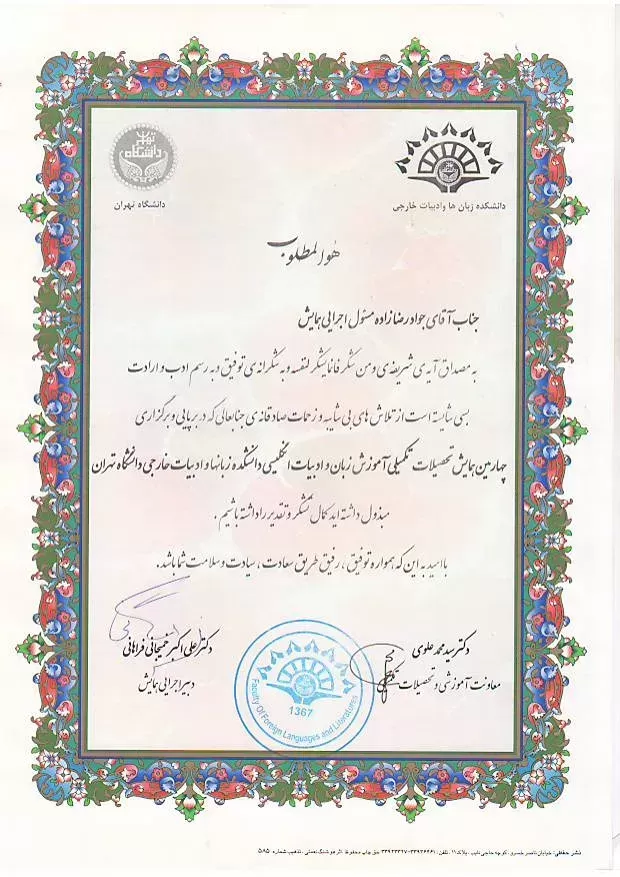 دانشگاه تهران
دانشکده زبان ها وادبیات خارجی
هوالمطلوب
جناب آقای جواد رضا زاده مسئول اجرایی همایش
به مصداق آیه ی شریفه ی و من شکر فانما یشکر لنفسه و به شکرانه ی توفیق و به رسم ادب و ارادت
بسی شایسته است از تلاش های بی شایبه و زحمات صادقانه ی جنابعالی که در برپایی و برگزاری
چهارمین همایش تحصیلات تکمیلی آموزش زبان و ادبیات انگلیسی دانشکده زبانها و ادبیات خارجی دانشگاه تهران
مبذول داشته اید کمال تشکر و تقدیر را داشته باشیم .
با امید به این که همواره توفیق ، رفیق طریق سعادت ، سیادت و سلامت شما باشد .
دکتر سید محمد علوی
معاونت آموزشی و تحصیلات
دکتر علی اکبر خمیجانی فراهانی
دبیر اجرایی همایش
1367
Faculty Of Foreign Languages and Literatures
نشر حقطی: خیابان ناصر خسرو، کوچه حاجی نایب، پلاک ۱۱، تلفن:
حق چاپ محفوظ
تذهیب شماره ۵۸۵